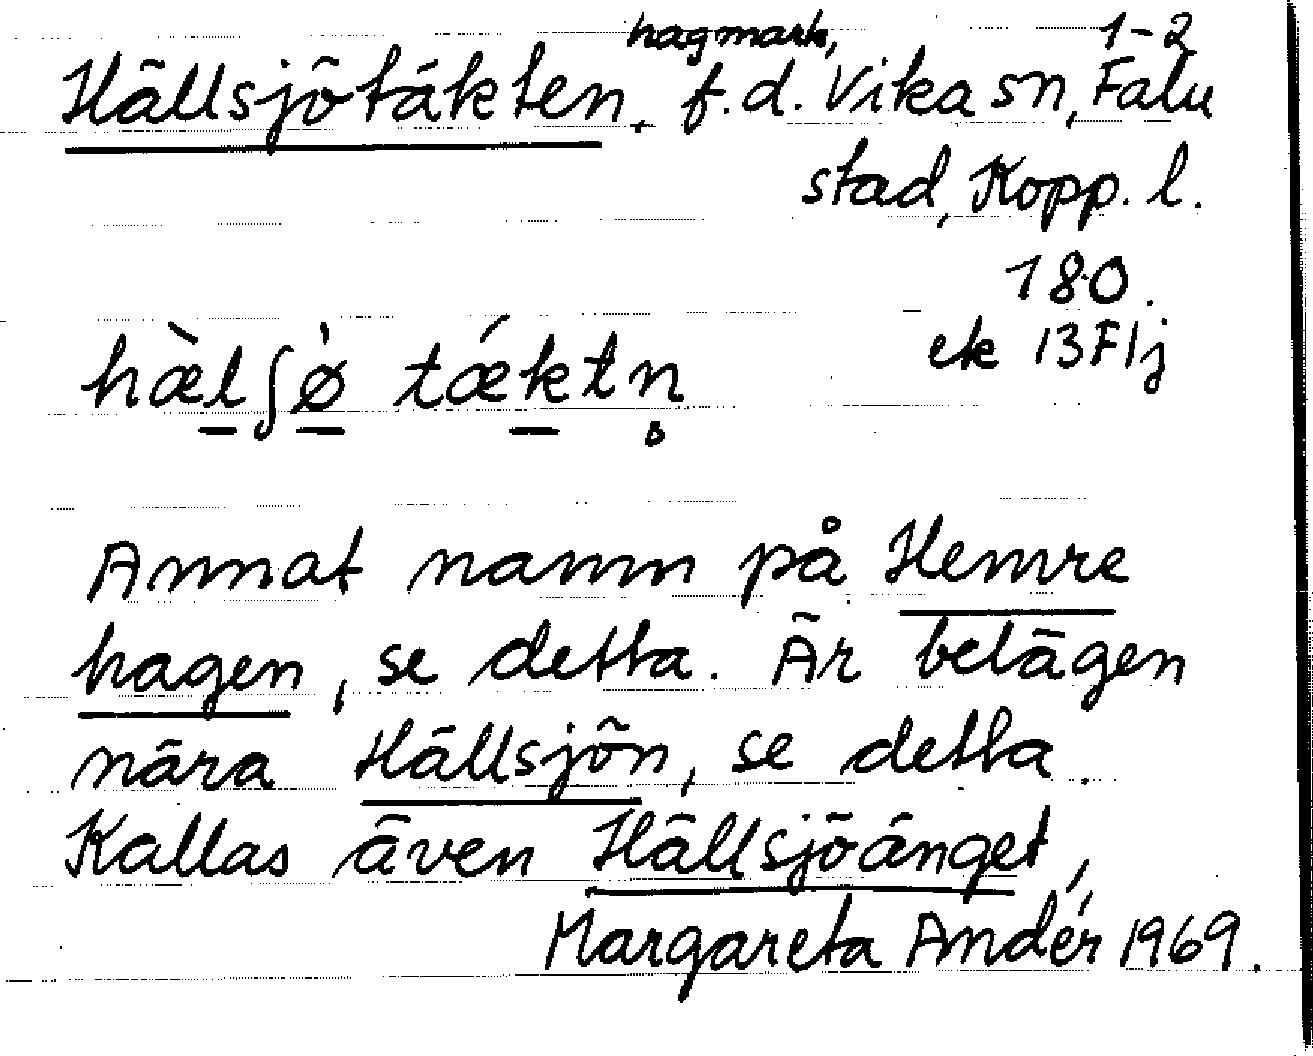 hagmark, 1-2
Hällsjötäkten. f.d. Vika sn, Falu
stad, Kopp. l.
180.
ek 13F1j
hæ̀l̲ʃø̲̀ tǽk̲tn̥
Annat namn på Hemre
hagen, se detta. Är belägen
nära Hällsjön, se detta.
Kallas även Hällsjöänget,
Margareta Andér 1969.